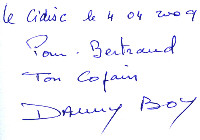 le Cidisc le 4 04 2009
Pour Bertrand
Ton Copain
DANNY BOY